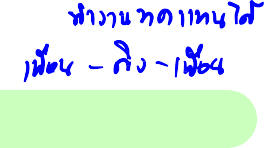 ทำงานทดแทนได้
เพื่อน - ถึง - เพื่อน